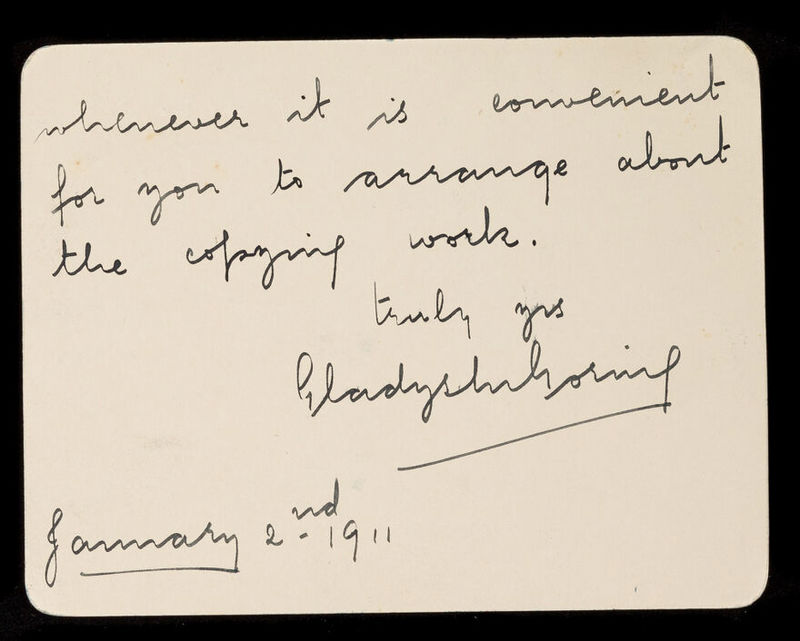 whenever it is convenient
for you to arrange about
the copying work.
truly yrs
Gladys Goring
January 2nd. 1911